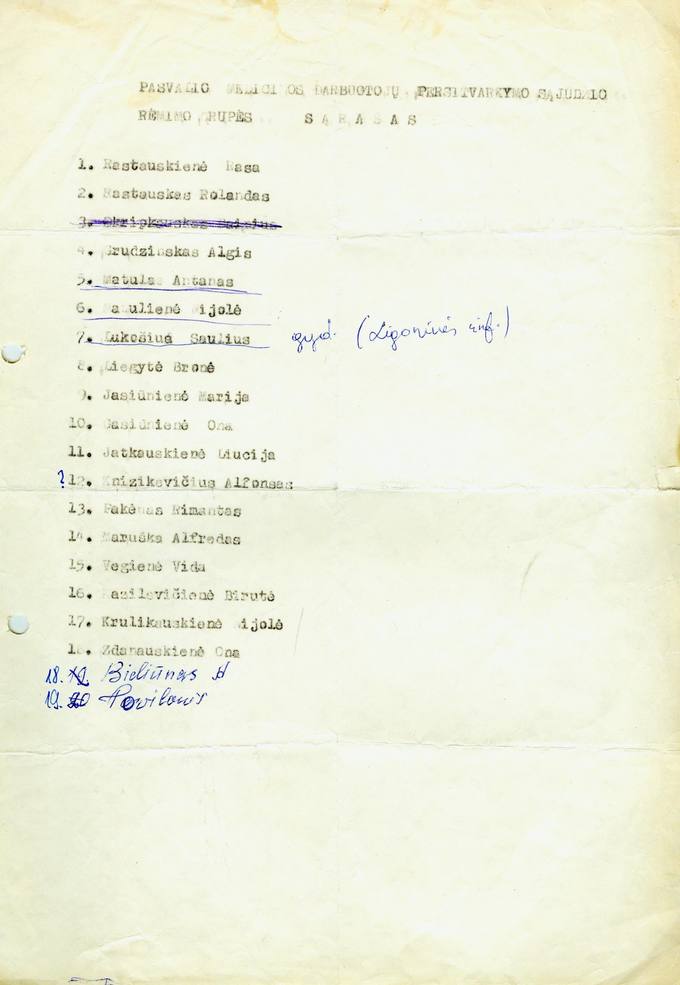 PASVALIO MEDICINOS DARBUOTOJŲ PERSITVARKYMO SĄJUDŽIO
RĖMIMO GRUPĖS S Ą R A Š A S
1. Rastauskienė Rasa
2. Rastauskas Rolandas
3. Skripkauskas
4. Grudzinskas Algis
5. Matulas Antanas
6. Matulienė Nijolė
7. Lukošius Saulius gyd. (Ligoninės inf.)
8. Liegytė Bronė
9. Jasiūnienė Marija
10. Gasiūnienė Ona
11. Jatkauskienė Liucija
? 12. Knizikevičius Alfonsas
13. Pakėnas Rimantas
14. Maruška Alfredas
15. Vegienė Vida
16. Vasilevičienė Birutė
17. Krulikauskienė Nijolė
18. Zdanauskienė Ona
18. Bieliūnas
19. 20 Povilonis